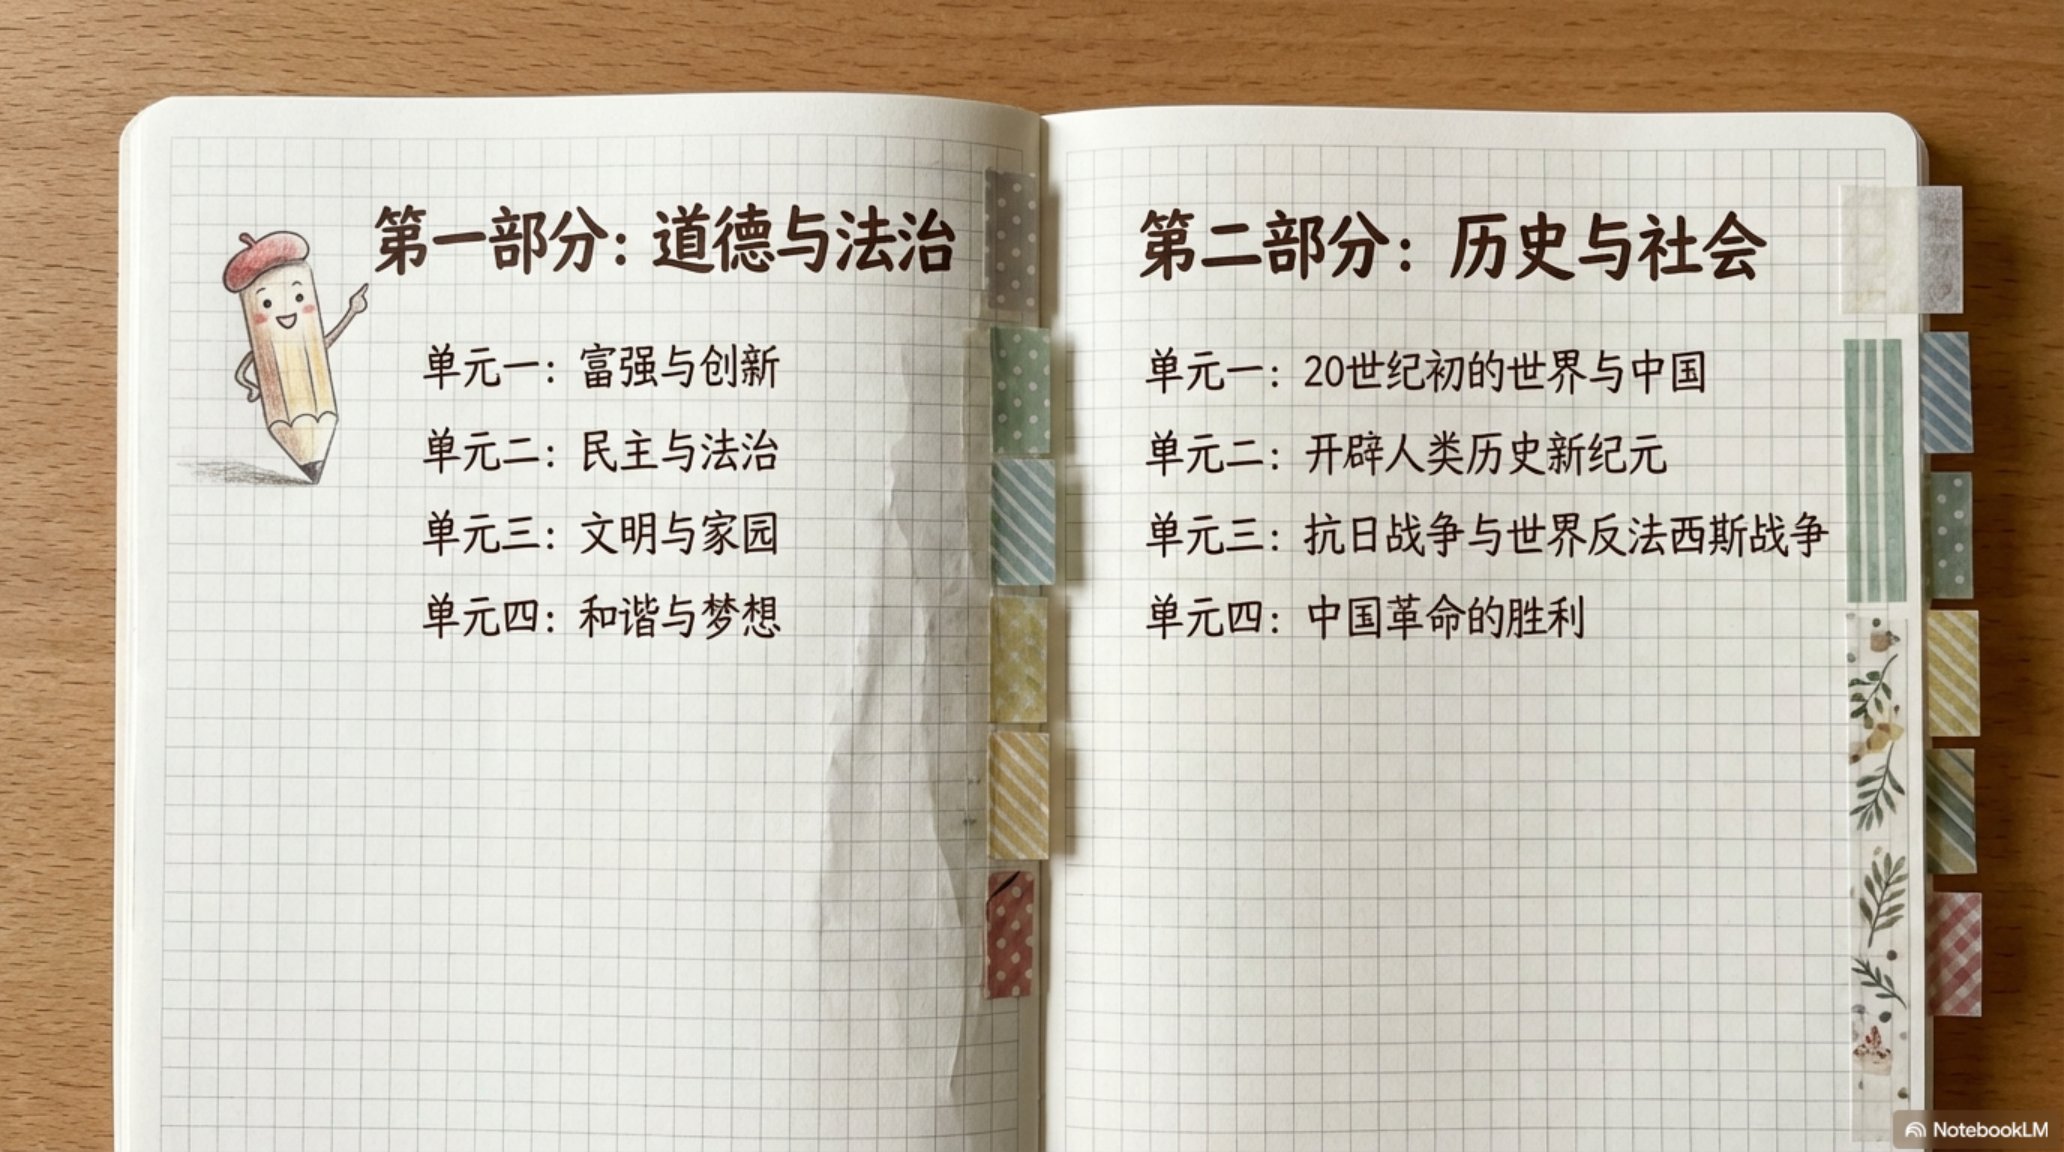 第一部分：道德与法治
单元一：富强与创新
单元二：民主与法治
单元三：文明与家园
单元四：和谐与梦想
第二部分：历史与社会
单元一：20世纪初的世界与中国
单元二：开辟人类历史新纪元
单元三：抗日战争与世界反法西斯战争
单元四：中国革命的胜利
NotebookLM